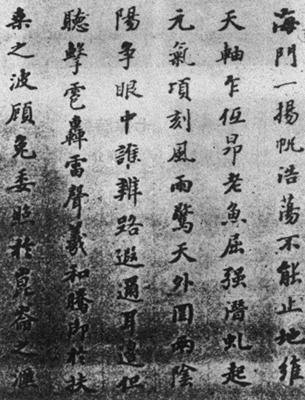 海門一揚帆浩蕩不能止地維
天軸乍低昂老魚屈强潛虬起
元氣頃刻風雨驚天外回兩陰
陽争眼中誰辨路遐邇耳邊但
聽擊雹轟雷聲羲和騰卸於扶
桑之波顧兔委照於崑崙之